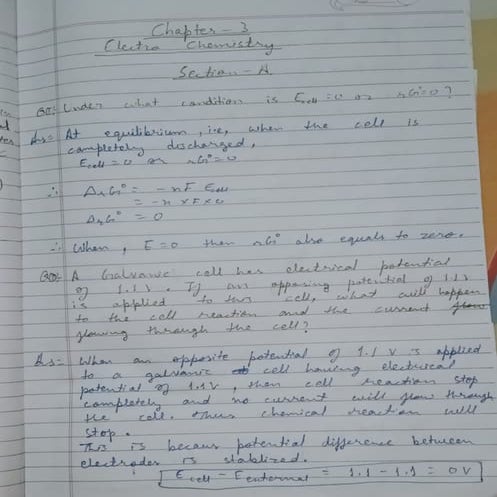 Chapter - 3
Electro Chemistry
Section - A
Q1= Under what condition is Ecell = 0 or ΔrG = 0 ?
Ans= At equilibrium, i.e, when the cell is
completely discharged,
Ecell = 0 or ΔrG = 0
∴ ΔrG° = - nF Ecell
= -n × F × 0
ΔrG° = 0
∴ When, E = 0 then ΔrG° also equals to zero.
Q2= A Galvanic cell has electrical potential
of 1.1 V. If an opposing potential of 1.1 V
is applied to this cell, what will happen
to the cell reaction and the current
flowing through the cell?
Ans= When an opposite potential of 1.1 V is applied
to a galvanic cell having electrical
potential of 1.1V, then cell reaction stop
completely and no current will flow through
the cell. Thus chemical reaction will
stop.
This is becaus potential difference between
electrodes is stablized.
Ecell - Eexternal = 1.1 - 1.1 = 0V